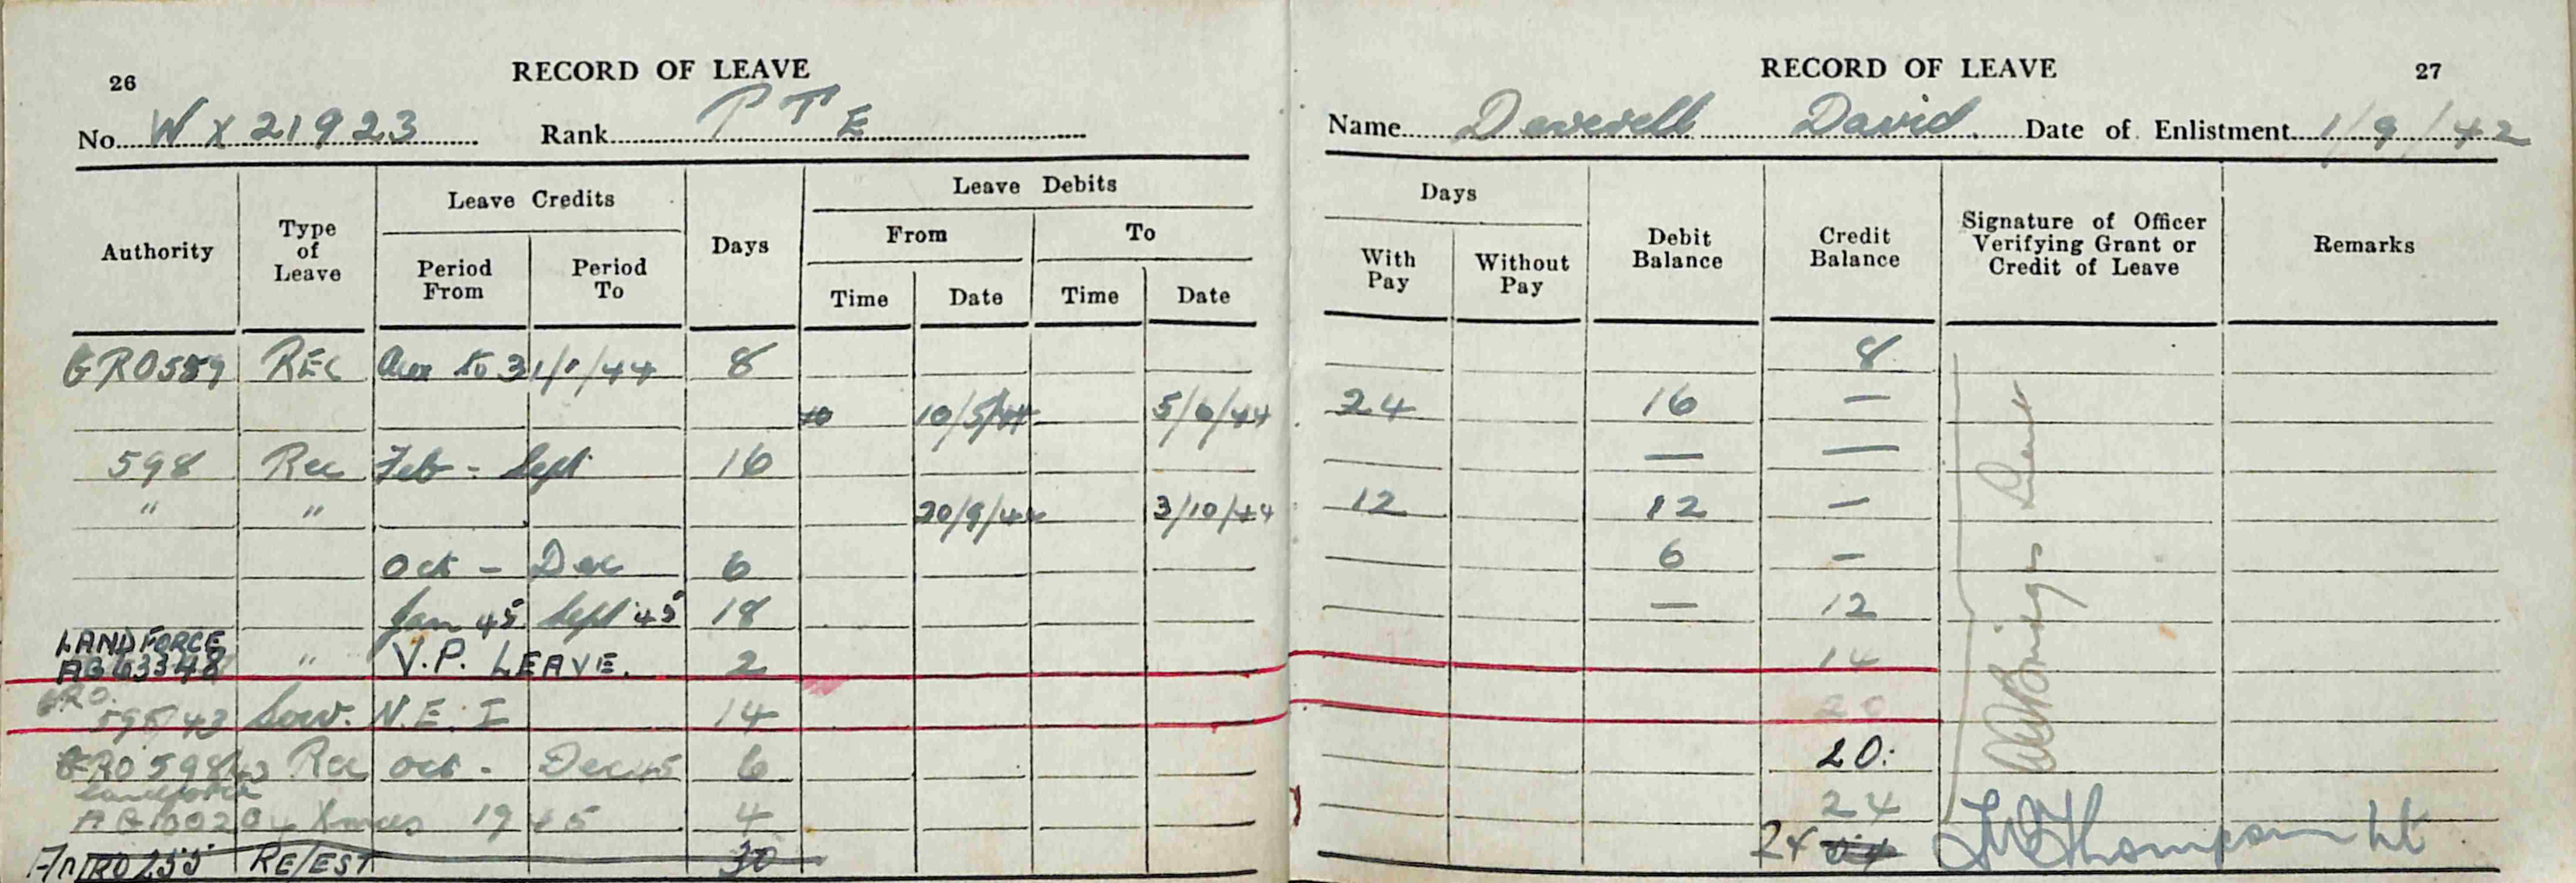 26
RECORD OF LEAVE
No. WX21923 Rank PTE
Leave Credits
Leave Debits
Authority
Type of Leave
Period From
Period To
Days
From
To
Time
Date
Time
Date
GRO559 REC 31/1/44 8
10/5/44 5/6/44
598 Rec Feb - Sept 16
" " 20/9/44 3/10/44
Oct - Dec 6
Jan 45 Sept 45 18
LANDFORCE
AG63348 " V.P. LEAVE. 2
GRO.
595/43 Sov. N.E.I 14
GRO 598/43 Rec Oct - Dec 45 6
Landforce
Xmas 1945 4
RO 255 RE/EST 30
RECORD OF LEAVE
27
Name Deverell David. Date of Enlistment 1/9/42
Days
With Pay
Without Pay
Debit Balance
Credit Balance
Signature of Officer Verifying Grant or Credit of Leave
Remarks
8
24 16 —
— —
12 12 —
6 —
— 12
14
20
20.
24
24 Thompson Lt
Lieut